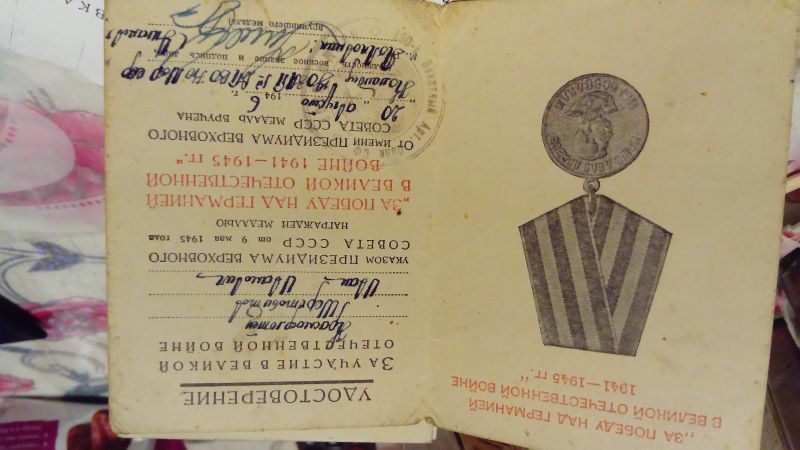 „ЗА ПОБЕДУ НАД ГЕРМАНИЕЙ
В ВЕЛИКОЙ ОТЕЧЕСТВЕННОЙ ВОЙНЕ
1941—1945 гг.“
НАШЕ ДЕЛО ПРАВОЕ
МЫ ПОБЕДИЛИ
УДОСТОВЕРЕНИЕ
ЗА УЧАСТИЕ В ВЕЛИКОЙ
ОТЕЧЕСТВЕННОЙ ВОЙНЕ
Краснофлотец
Иван Иванович
УКАЗОМ ПРЕЗИДИУМА ВЕРХОВНОГО
СОВЕТА СССР от 9 мая 1945 года
НАГРАЖДЕН МЕДАЛЬЮ
„ЗА ПОБЕДУ НАД ГЕРМАНИЕЙ
В ВЕЛИКОЙ ОТЕЧЕСТВЕННОЙ
ВОЙНЕ 1941—1945 гг.“
ОТ ИМЕНИ ПРЕЗИДИУМА ВЕРХОВНОГО
СОВЕТА СССР МЕДАЛЬ ВРУЧЕНА
20 августа 1946 г.
Командир
военное звание и подпись лица,
вручившего медаль
М. П.
Зенитный Арт.